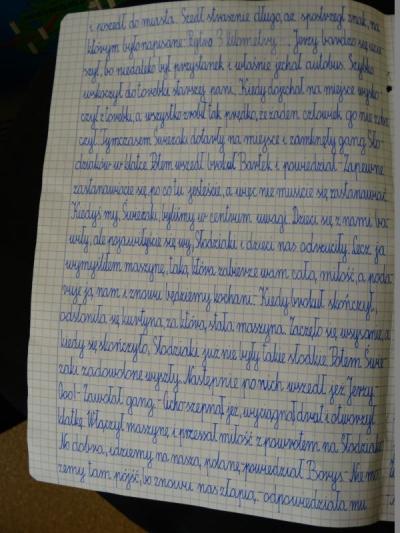 i poszedł do miasta. Szedł strasznie długo, aż spostrzegł znak, na
którym było napisane: Rytro 3 kilometry. Jerzy bardzo się ucie
szył, bo niedaleko był przystanek i właśnie jechał autobus. Szybko
wskoczył do torebki starszej pani. Kiedy dojechał na miejsce wysko
czył z torebki, a wszystko zrobił tak prędko, że żaden człowiek go nie zoba
czył. Tymczasem Świeżaki dotarły na miejsce i zamknęły gang Sło
dziaków w klatce. Potem wszedł brokuł Bartek i powiedział - Zapewne
zastanawiacie się, po co tu jesteście, a więc nie musicie się zastanawiać.
Kiedyś my, Świeżaki, byliśmy w centrum uwagi. Dzieci się z nami ba
wiły, ale pojawiłyście się wy, Słodziaki i dzieci nas odrzuciły. Lecz ja
wymyśliłem maszynę, taką, która zabierze wam całą miłość, a poda
ruje ją nam i znowu będziemy kochani. Kiedy brokuł skończył,
odsłoniła się kurtyna, za którą stała maszyna. Zaczęło się wysysanie, a
kiedy się skończyło, Słodziaki już nie były takie słodkie. Potem Świe
żaki zadowolone wyszły. Następnie po nich wszedł jeż Jerzy.
- Zawołał gang. - Ucho szepnął jeż, wyciągnął drut i otworzył
klatkę. Włączył maszynę i przesłał miłość z powrotem na Słodziaki.
No dobra, idziemy na naszą polanę - powiedział Borys - Nie mo
żemy tam pójść, bo znowu nas złapią, - odpowiedziała mu